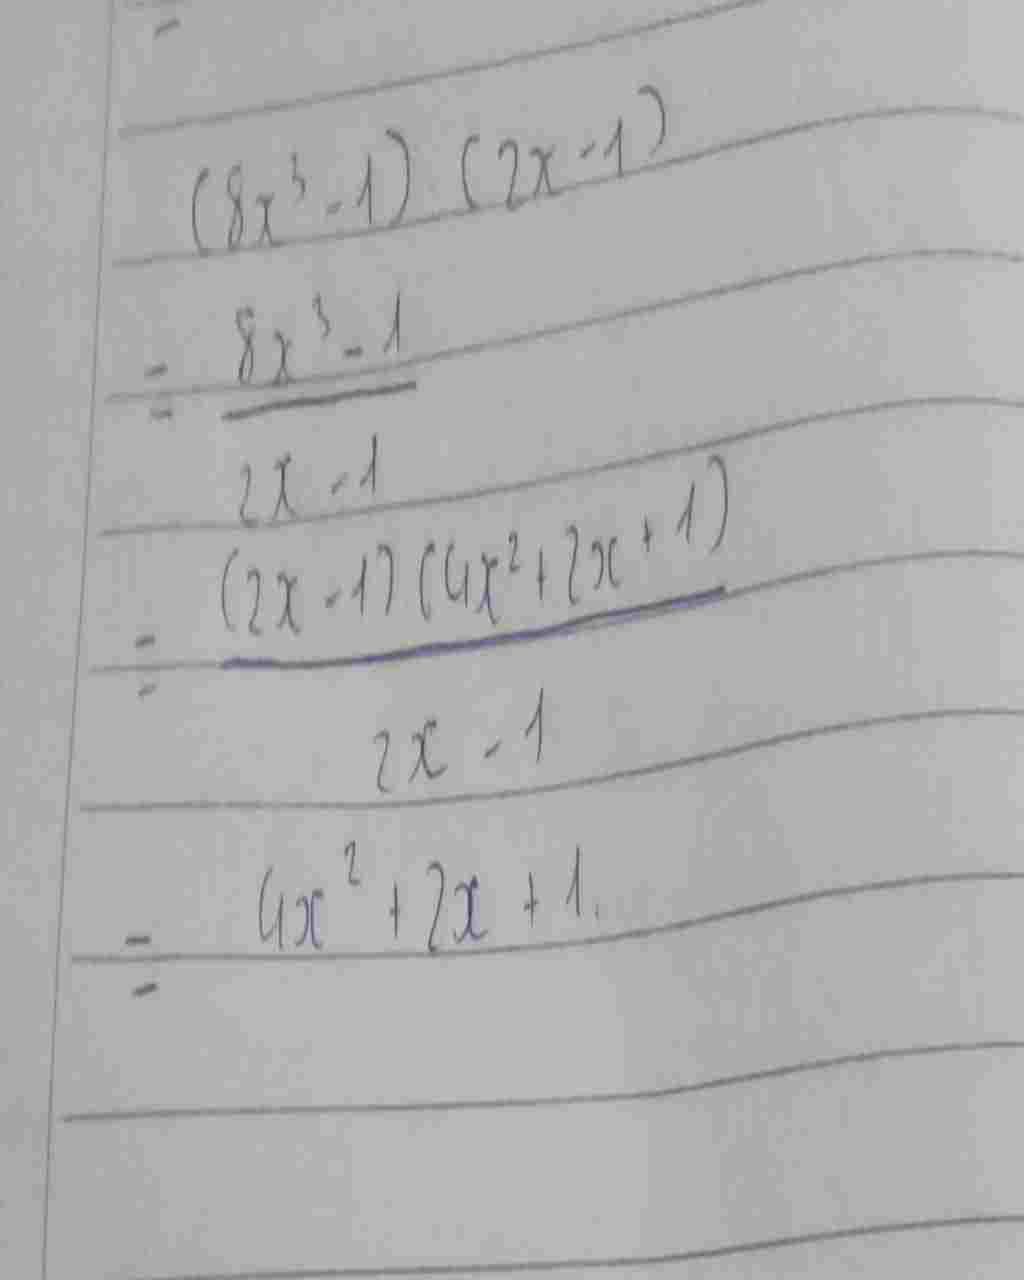 (8x³ - 1) (2x - 1)
= 8x³ - 1
2x - 1
= (2x - 1) (4x² + 2x + 1)
2x - 1
= 4x² + 2x + 1.